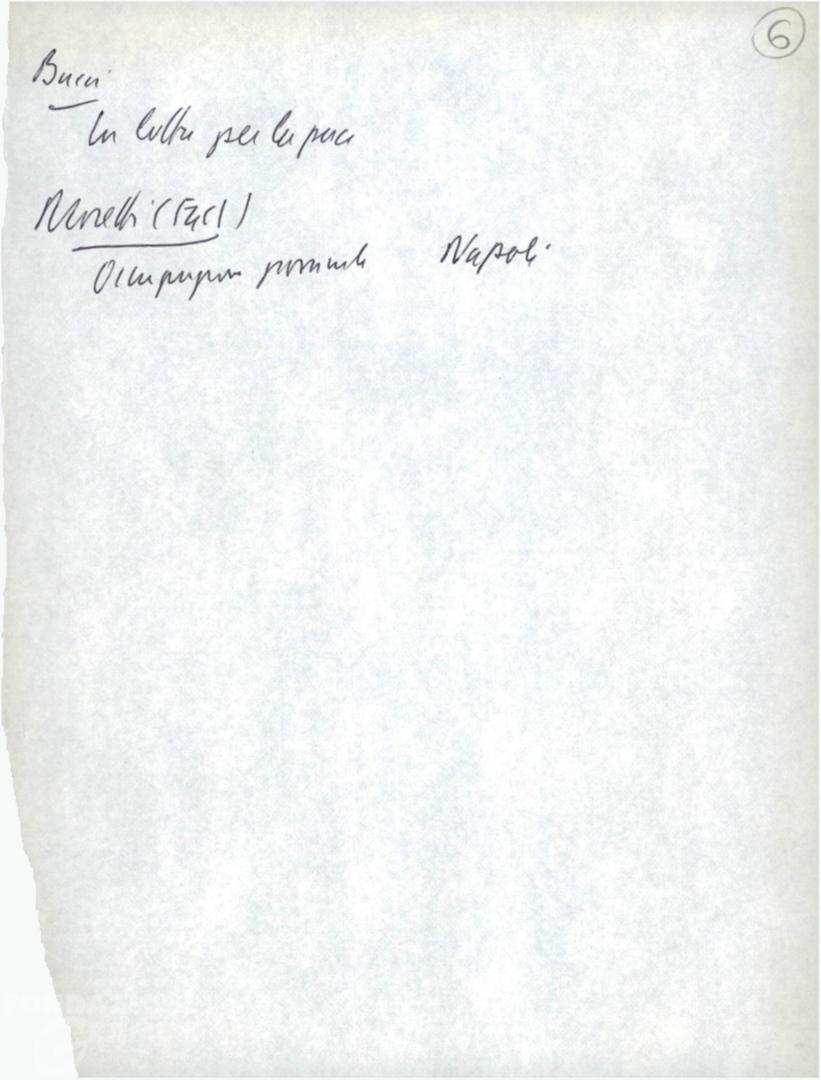 6
Bucci
La lotta per la pace
Moretti (FGCI)
Occupazione giovanile Napoli